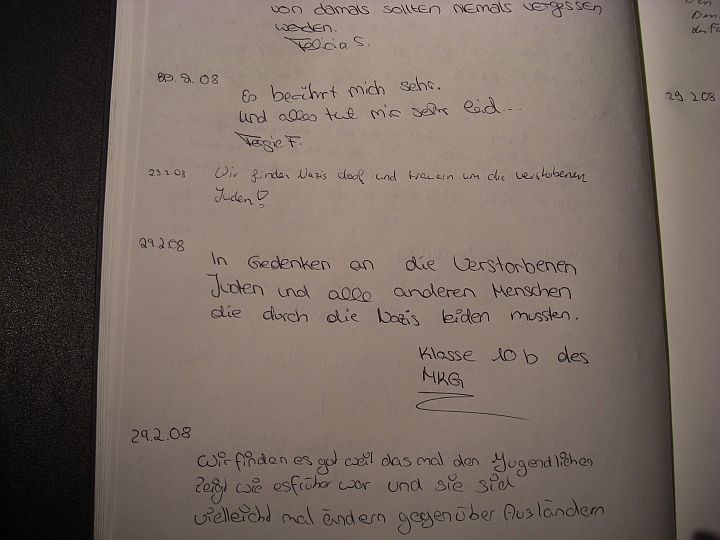 von damals sollten niemals vergessen
werden.
Felicia S.
29.2.08
Es berührt mich sehr.
Und alles tut mir sehr leid...
F.
29.2.08 Wir finden Nazis doof und trauern um die verstorbenen
Juden!
29.2.08
In Gedenken an die Verstorbenen
Juden und alle anderen Menschen
die durch die Nazis leiden mussten.
Klasse 10b des
MKG
29.2.08
Wir finden es gut weil das mal den Jugendlichen
zeigt wie es früher war und sie sich
vielleicht mal ändern gegenüber Ausländern
29.2.08